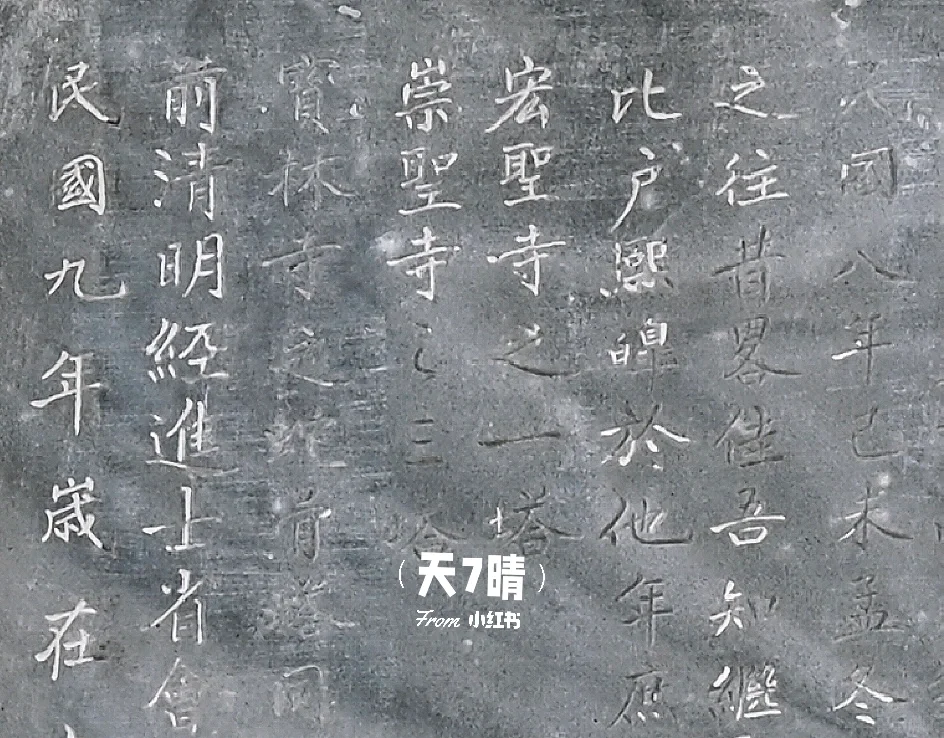 同八年己未孟冬
之往昔畧佳吾知繼
比户熙皥於他年庶
宏聖寺之一塔
崇聖寺之三塔
寳林寺之蛇骨塔同
前清明經進士省會
民國九年歲在
(天7晴)
From 小红书